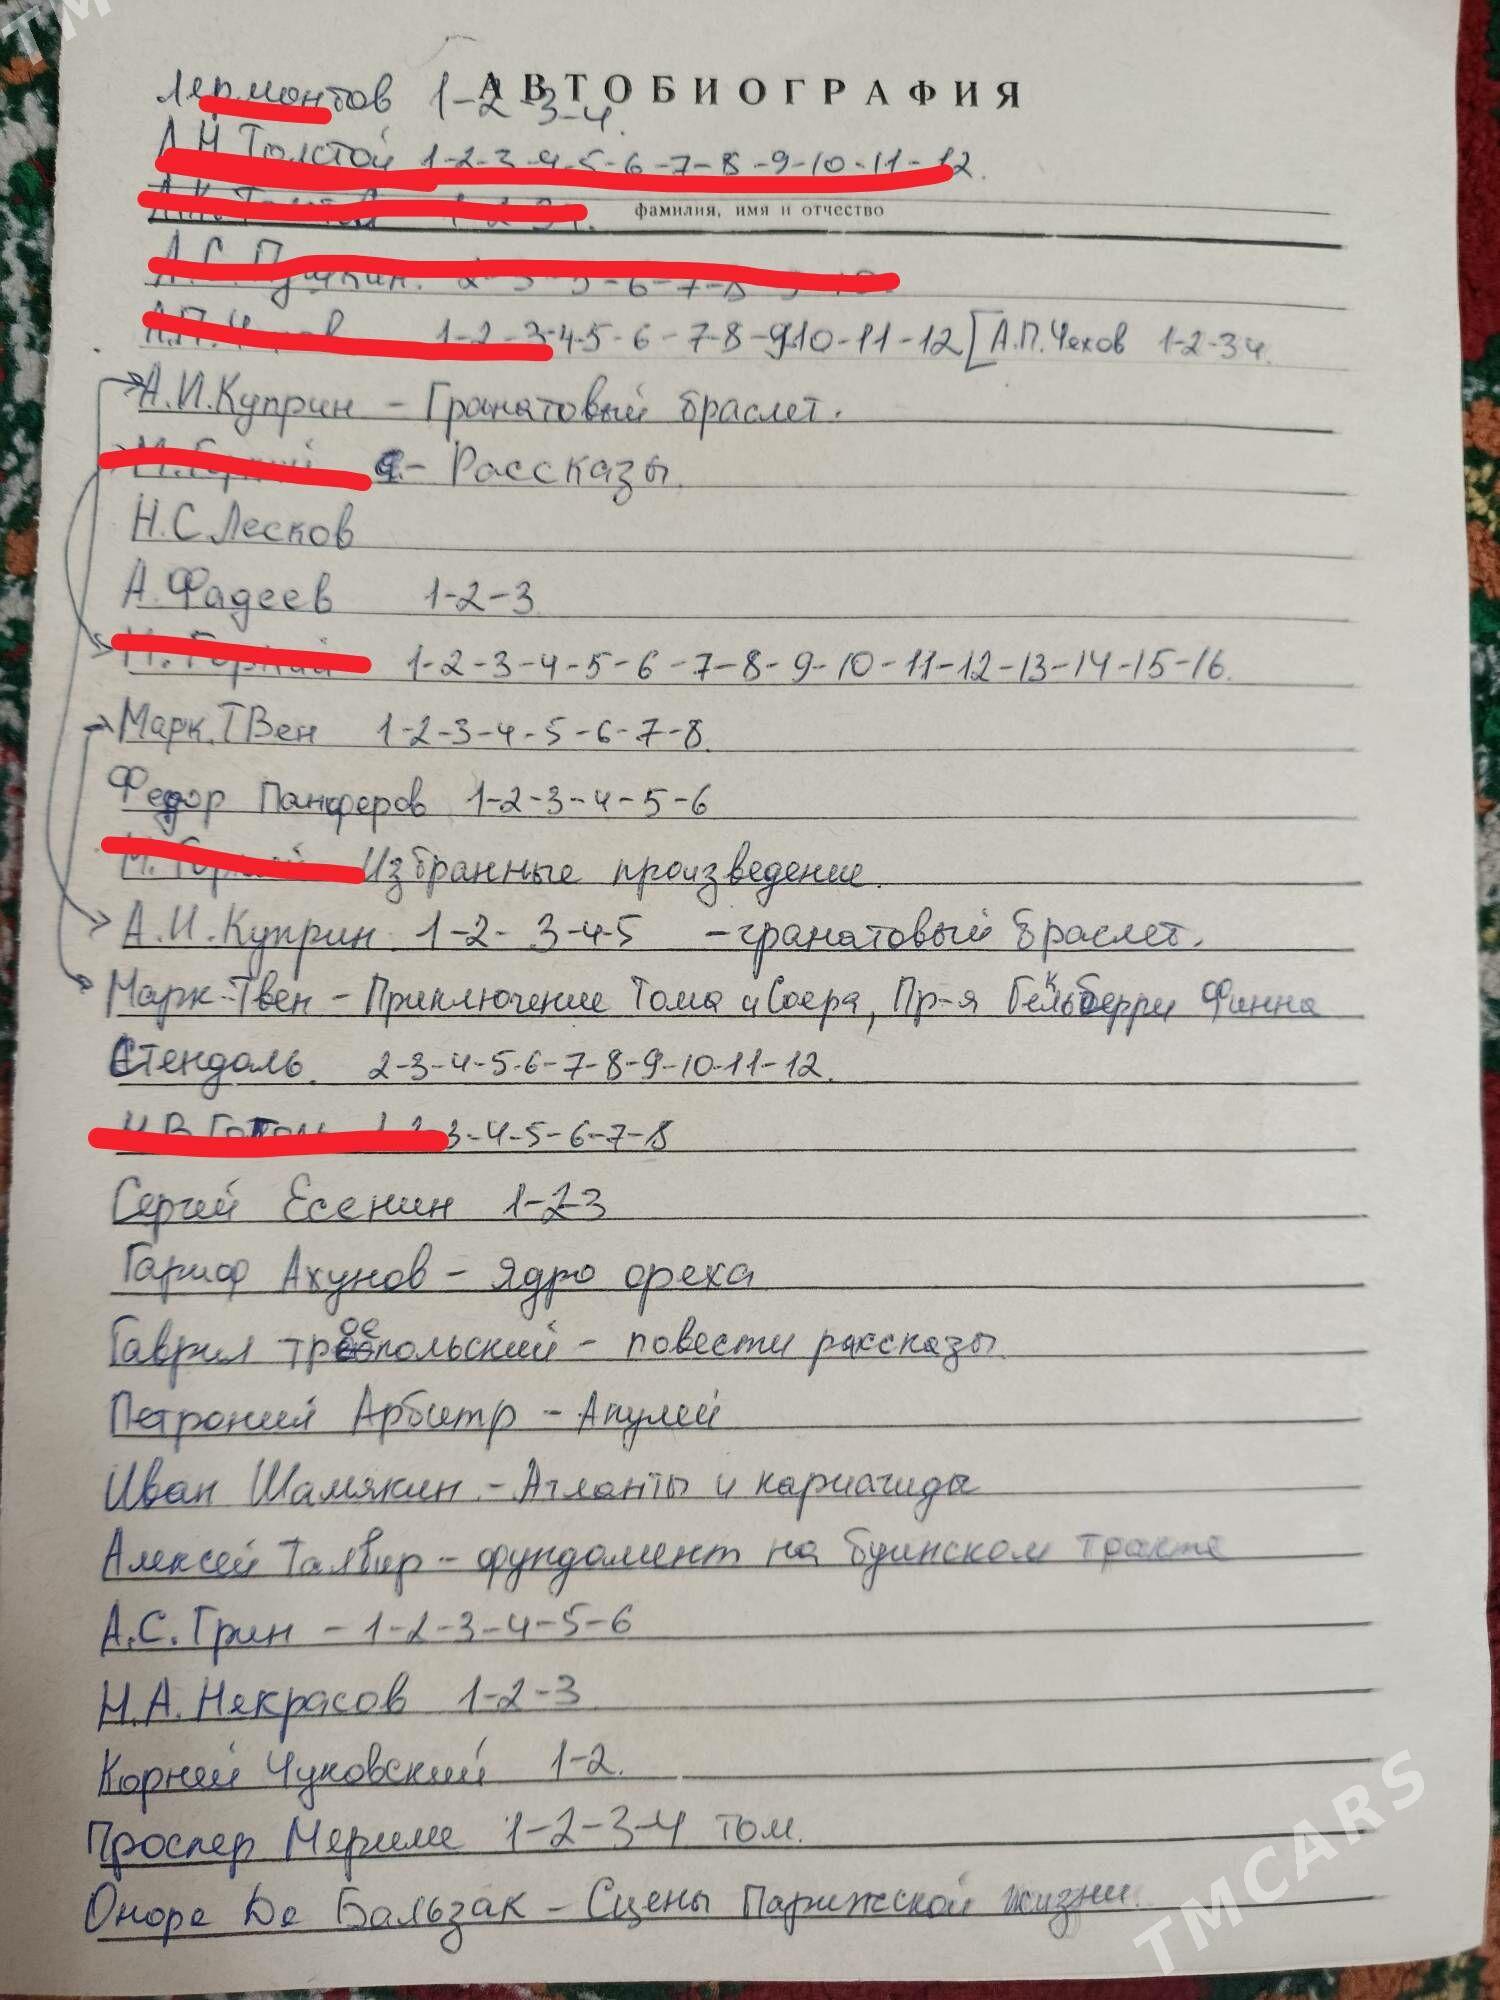 АВТОБИОГРАФИЯ
Лермонтов 1-2-3-4.
Толстой 1-2-3-4-5-6-7-8-9-10-11-12.
фамилия, имя и отчество
А.С.Пушкин. 2-3-5-6-7-8-9-10.
А.П.Чехов 1-2-3-4-5-6-7-8-9 10-11-12 [А.П.Чехов 1-2-3 4.
А.И.Куприн - Гранатовый браслет.
М.Горький - Рассказы.
Н.С.Лесков
А.Фадеев 1-2-3.
М.Горький 1-2-3-4-5-6-7-8-9-10-11-12-13-14-15-16.
Марк.Твен 1-2-3-4-5-6-7-8.
Федор Панферов 1-2-3-4-5-6
М.Горький Избранные произведение.
А.И.Куприн. 1-2-3-4-5 - гранатовый браслет.
Марк-Твен - Приключение Тома и Соера, Пр-я Гекльберри Финна
Стендаль. 2-3-4-5-6-7-8-9-10-11-12.
Н.В.Гоголь 1-2-3-4-5-6-7-8
Сергей Есенин 1-2-3
Гариф Ахунов - Ядро ореха
Гаврил троепольский - повести рассказы.
Петроний Арбитр - Апулей
Иван Шамякин. - Атланты и кариатиды
Алексей Талвир - фундамент на буинском тракте
А.С.Грин - 1-2-3-4-5-6
Н.А.Некрасов 1-2-3.
Корней Чуковский 1-2.
Проспер Мериме 1-2-3-4 том.
Оноре Де Бальзак - Сцены Парижской жизни.
TMCARS